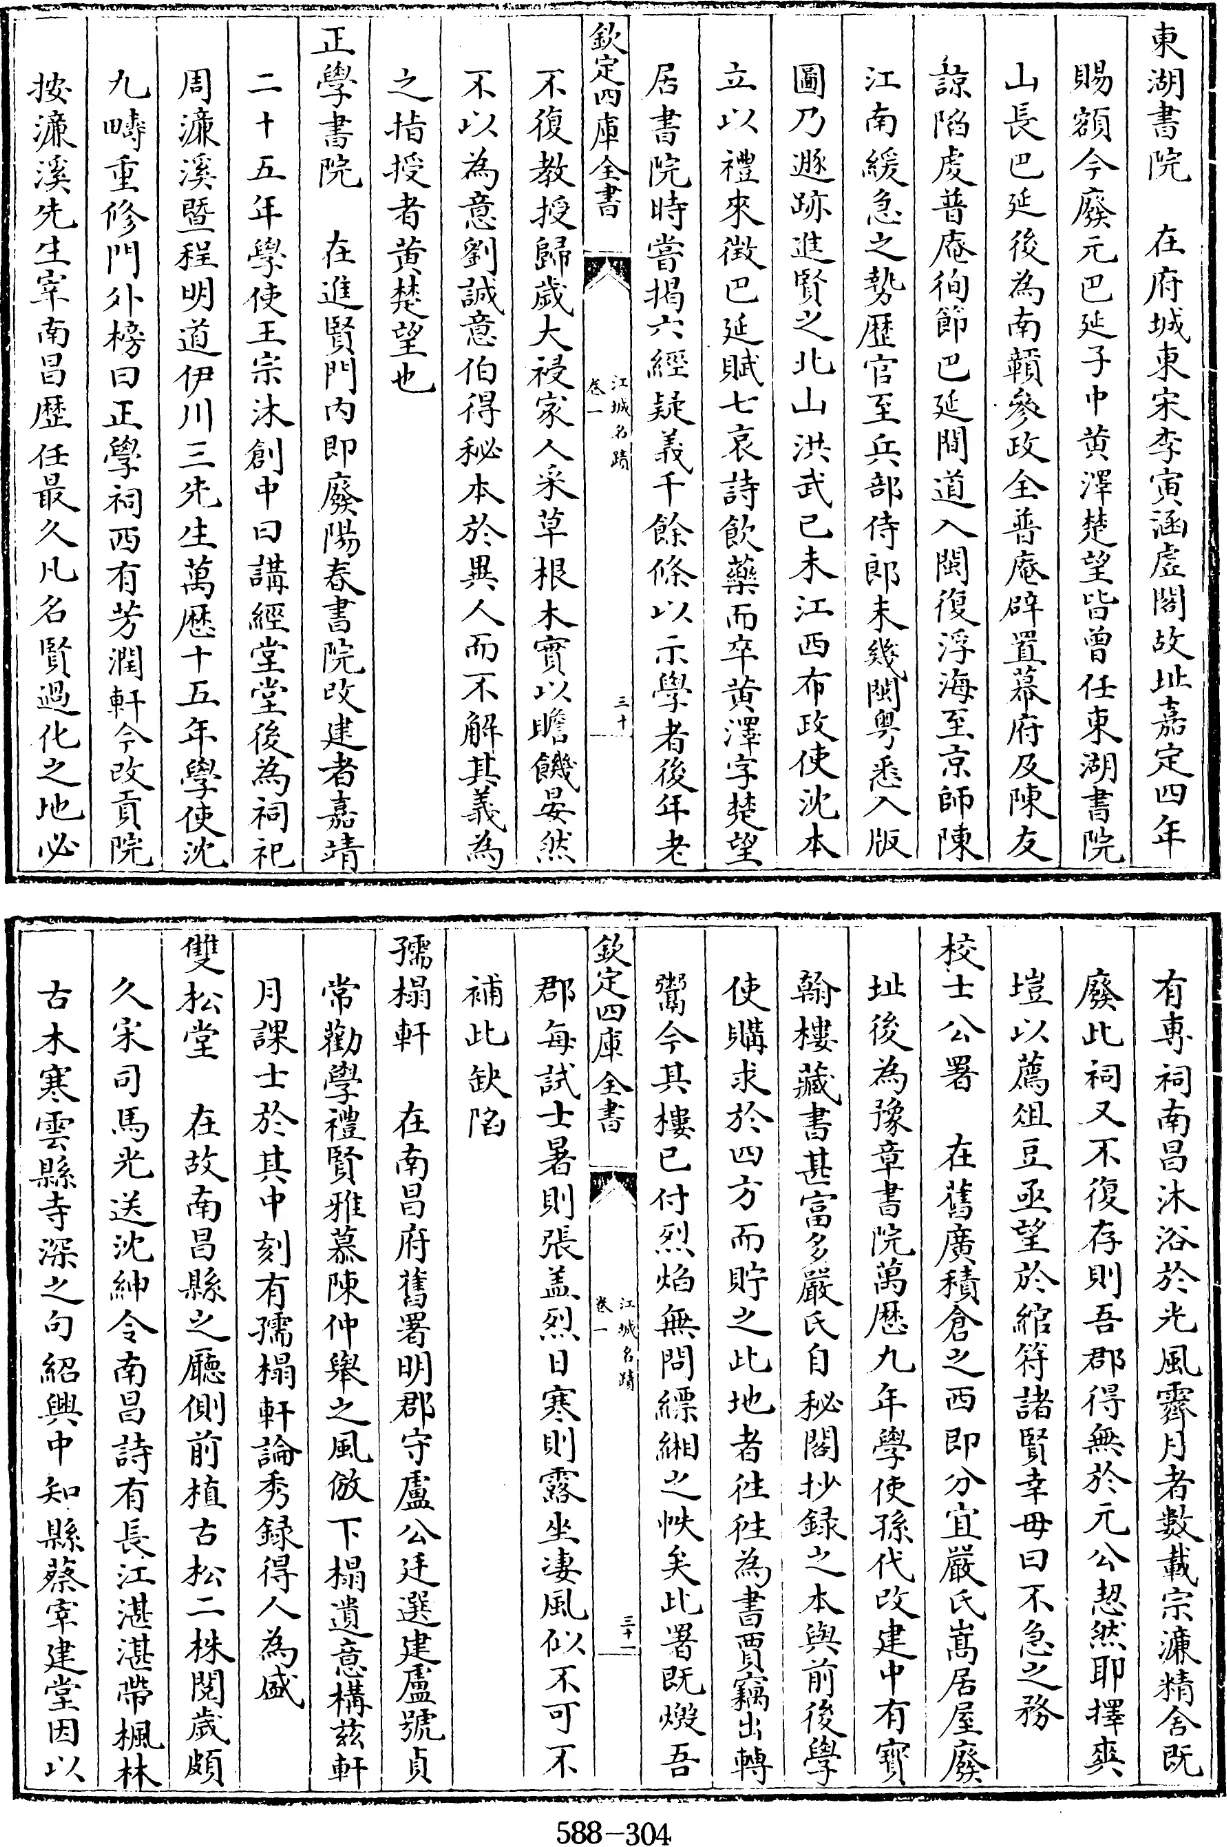 東湖書院　在府城東宋李寅涵虛閣故址嘉定四年
賜額今廢元巴延子中黃澤楚望皆曾任東湖書院
山長巴延後為南贛參政全普庵辟置幕府及陳友
諒陷虔普庵徇節巴延間道入閩復浮海至京師陳
江南緩急之勢歷官至兵部侍郎未幾閩粵悉入版
圖乃遯跡進賢之北山洪武己未江西布政使沈本
立以禮來徵巴延賦七哀詩飲藥而卒黃澤字楚望
居書院時嘗揭六經疑義千餘條以示學者後年老
欽定四庫全書
江城名蹟
卷一
三十
不復教授歸歲大祲家人采草根木實以贍饑晏然
不以為意劉誠意伯得秘本於異人而不解其義為
之指授者黃楚望也
正學書院　在進賢門內即廢陽春書院改建者嘉靖
二十五年學使王宗沐創中曰講經堂堂後為祠祀
周濂溪暨程明道伊川三先生萬歷十五年學使沈
九疇重修門外榜曰正學祠西有芳潤軒今改貢院
按濂溪先生宰南昌歷任最久凡名賢過化之地必
有專祠南昌沐浴於光風霽月者數載宗濂精舍既
廢此祠又不復存則吾郡得無於元公恝然耶擇爽
塏以薦俎豆亟望於綰符諸賢幸毋曰不急之務
校士公署　在舊廣積倉之西即分宜嚴氏嵩居屋廢
址後為豫章書院萬歷九年學使孫代改建中有寶
翰樓藏書甚富多嚴氏自秘閣抄錄之本與前後學
使購求於四方而貯之此地者往往為書賈竊出轉
鬻今其樓已付烈焰無問縹緗之帙矣此署既燬吾
欽定四庫全書
江城名蹟
卷一
三十一
郡每試士暑則張蓋烈日寒則露坐淒風似不可不
補此缺陷
孺榻軒　在南昌府舊署明郡守盧公廷選建盧號貞
常勸學禮賢雅慕陳仲舉之風倣下榻遺意構茲軒
月課士於其中刻有孺榻軒論秀錄得人為盛
雙松堂　在故南昌縣之廳側前植古松二株閱歲頗
久宋司馬光送沈紳令南昌詩有長江湛湛帶楓林
古木寒雲縣寺深之句紹興中知縣蔡宰建堂因以
588—304